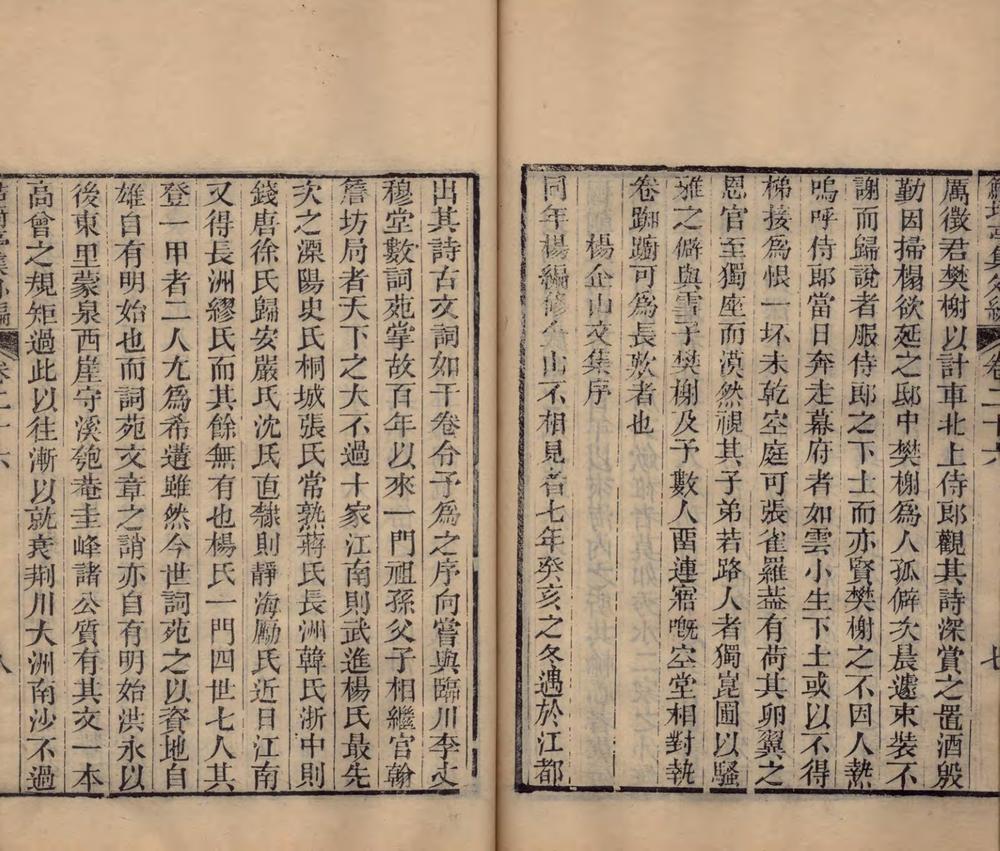 鮚埼亭集外編 卷二十六 七
厲徵君樊榭以計車北上侍郎觀其詩深賞之置酒殷
勤因掃榻欲延之邸中樊榭爲人孤僻次晨遽束裝不
謝而歸說者服侍郎之下士而亦賢樊榭之不因人熱
嗚呼侍郎當日奔走幕府者如雲小生下士或以不得
梯接爲恨一坏未乾空庭可張雀羅葢有荷其卵翼之
恩官至獨座而漠然視其子弟若路人者獨崑圃以騷
雅之僻與雪子樊榭及予數人畱連寤嘅空堂相對執
卷踟躕可爲長歎者也
楊企山文集序
同年楊編修企山不相見者七年癸亥之冬遇於江都
出其詩古文詞如干卷令予爲之序向嘗與臨川李丈
穆堂數詞苑掌故百年以來一門祖孫父子相繼官翰
詹坊局者天下之大不過十家江南則武進楊氏最先
次之溧陽史氏桐城張氏常熟蔣氏長洲韓氏浙中則
錢唐徐氏歸安嚴氏沈氏直隸則靜海勵氏近日江南
又得長洲繆氏而其餘無有也楊氏一門四世七人其
登一甲者二人尤爲希遘雖然今世詞苑之以資地自
雄自有明始也而詞苑文章之誚亦自有明始洪永以
後東里蒙泉西崖守溪匏菴圭峰諸公質有其文一本
高曾之規矩過此以往漸以就衰荆川大洲南沙不過
鮚埼亭集外編 卷二十六 八